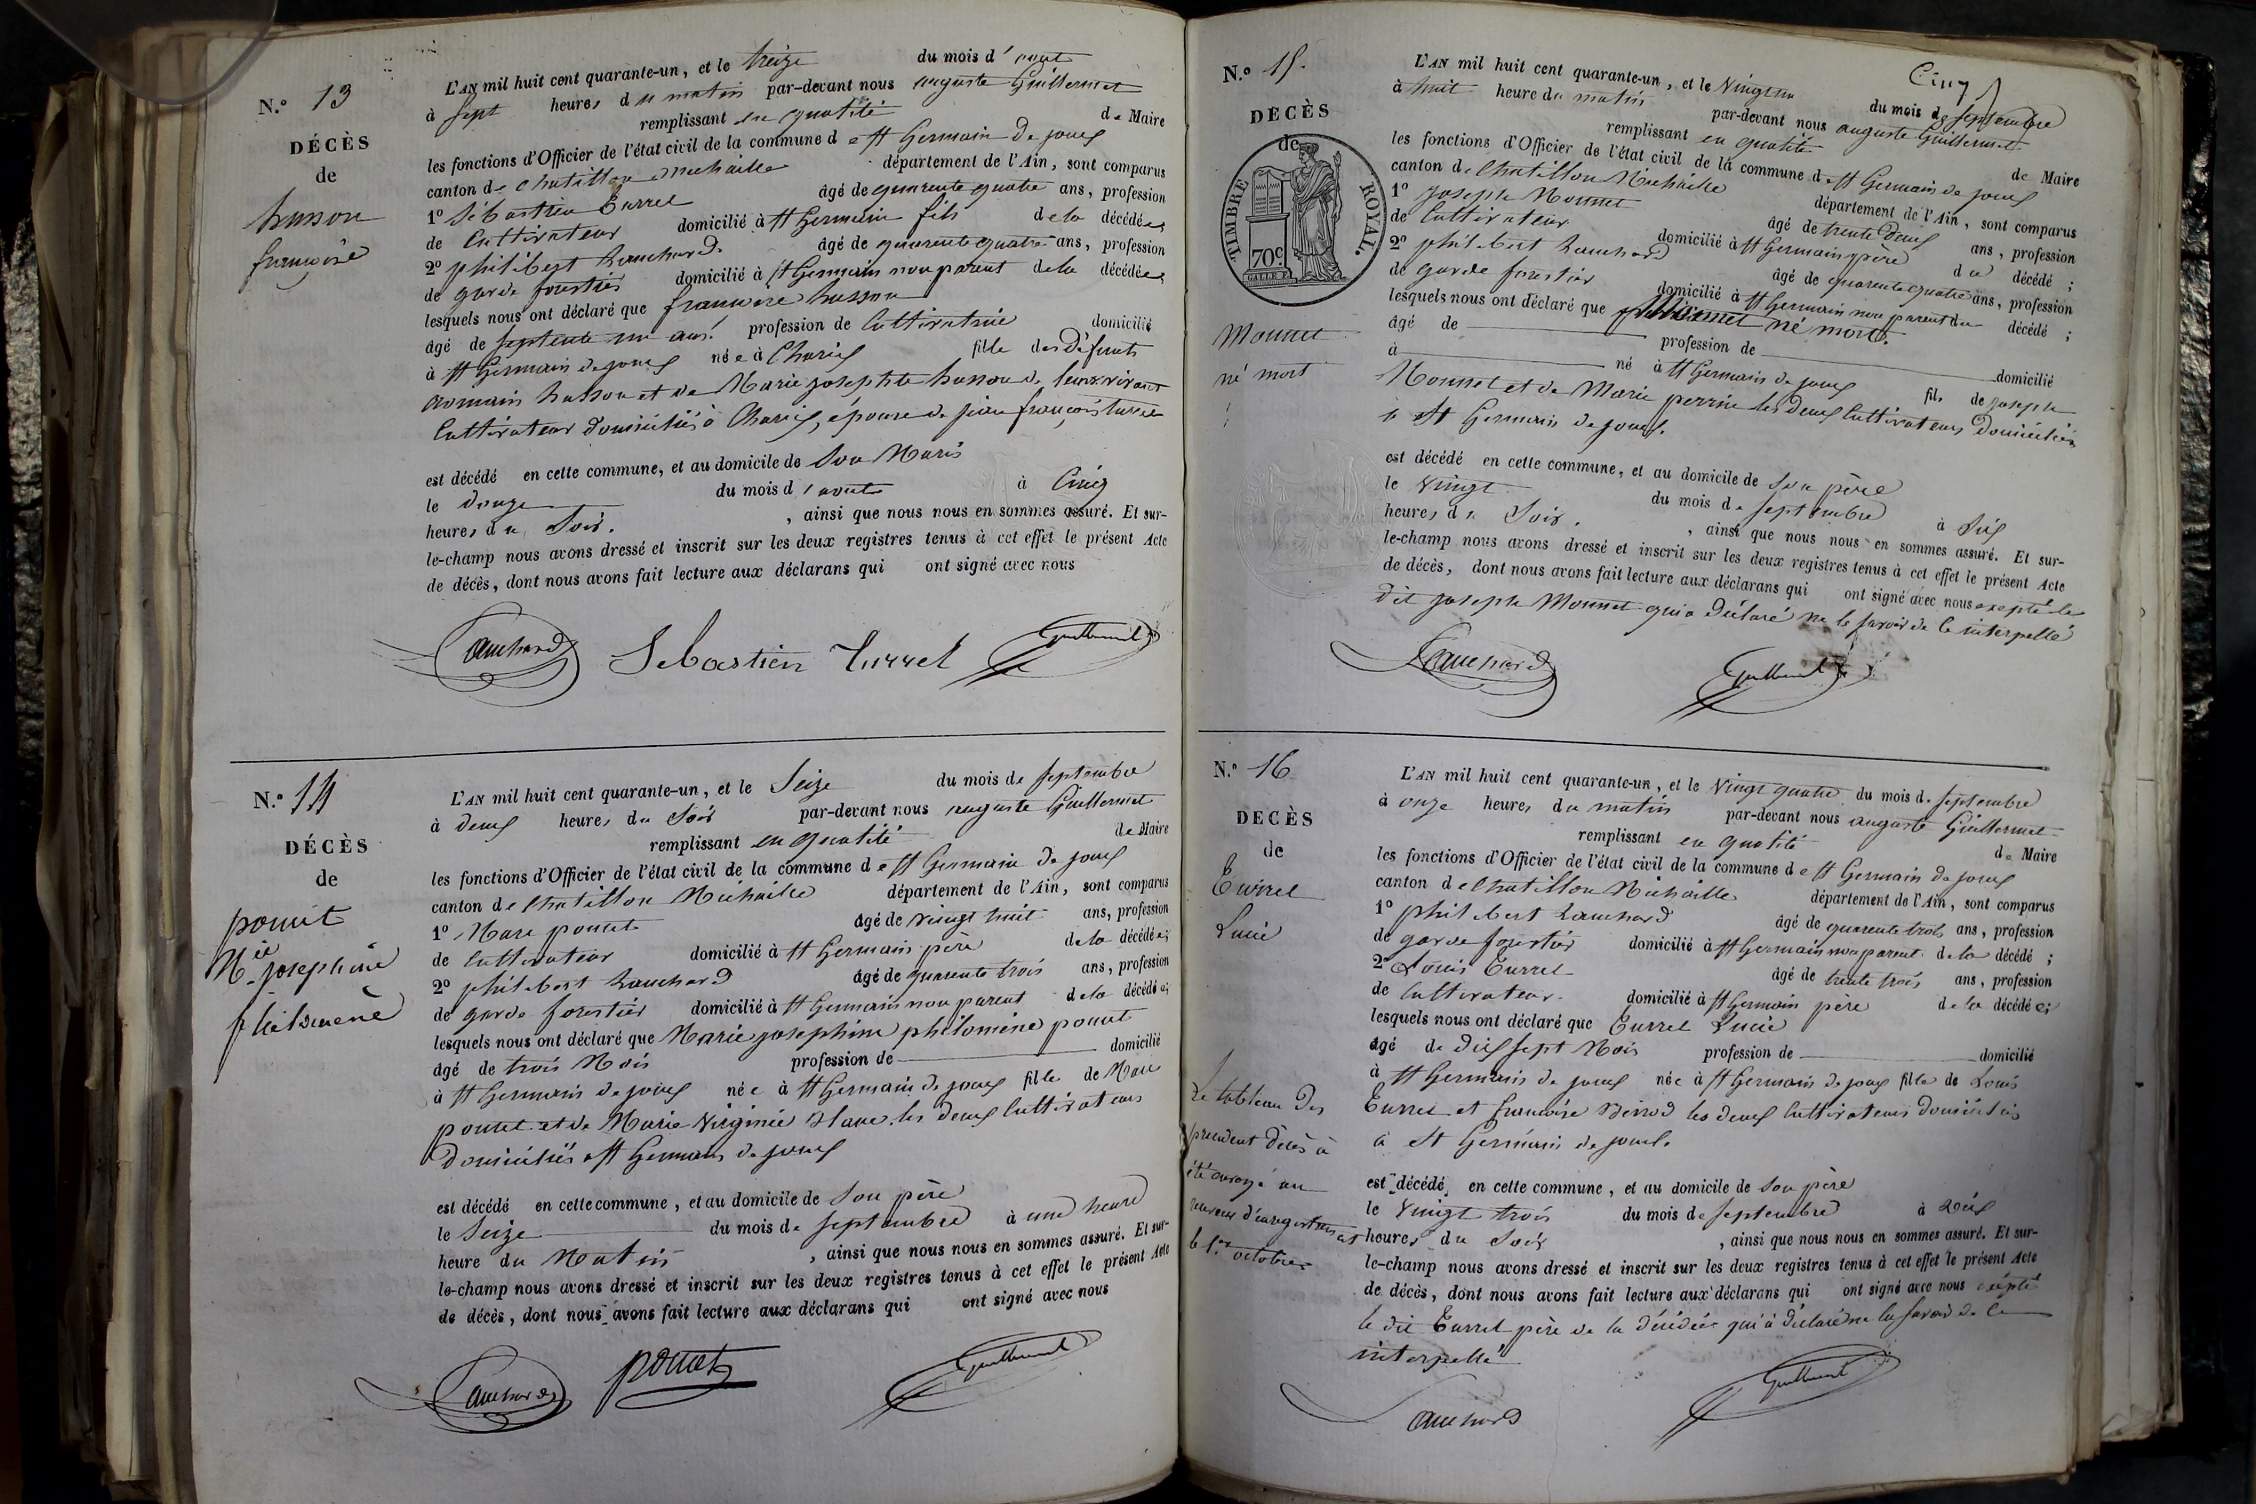 N.° 13
DÉCÈS
de
husson
françoise
L'AN mil huit cent quarante-un, et le treize du mois d'aout
à sept heures du matin par-devant nous auguste Guillermet
remplissant en qualité de Maire
les fonctions d'Officier de l'état civil de la commune de St Germain de joux
canton de Chatillon michaille département de l'Ain, sont comparus
1° Sébastien Turrel âgé de quarente quatre ans, profession
de Cultivateur domicilié à St Germain fils de la décédée
2° philibert Lanchard âgé de quarente quatre ans, profession
de garde forestier domicilié à St Germain non parent de la décédée
lesquels nous ont déclaré que françoise husson
âgé de septente un ans profession de Cultivatrice domicilié
à St Germain de joux née à Charix fille des défunts
romain husson et de Marie josephte husson de leurs vivant
Cultivateur domiciliés à Charix, épouse de jean françois turrel
est décédé en cette commune, et au domicile de son Maris
le douze du mois d'aout à Cinq
heures du Soir. , ainsi que nous nous en sommes assuré. Et sur-
le-champ nous avons dressé et inscrit sur les deux registres tenus à cet effet le présent Acte
de décès, dont nous avons fait lecture aux déclarans qui ont signé avec nous
Lanchard Sebastien Turrel Guillermet
N.° 14
DÉCÈS
de
poncet
M.ie josephine
philomène
L'AN mil huit cent quarante-un, et le Seize du mois de septembre
à deux heures du Soir par-devant nous auguste Guillermet
remplissant en qualité de Maire
les fonctions d'Officier de l'état civil de la commune de St Germain de joux
canton de Chatillon Michaille département de l'Ain, sont comparus
1° Marc poncet âgé de vingt huit ans, profession
de Cultivateur domicilié à St Germain père de la décédée;
2° philibert Lanchard âgé de quarente trois ans, profession
de garde forestier domicilié à St Germain non parent de la décédée;
lesquels nous ont déclaré que Marie josephine philomène poncet
âgé de trois Mois profession de domicilié
à St Germain de joux née à St Germain de joux fille de Marc
poncet et de Marie Virginie les deux Cultivateurs
Domiciliés a St Germain de joux
est décédé en cette commune, et au domicile de Son père
le Seize du mois de septembre à une heure
heure du Matin , ainsi que nous nous en sommes assuré. Et sur-
le-champ nous avons dressé et inscrit sur les deux registres tenus à cet effet le présent Acte
de décès, dont nous avons fait lecture aux déclarans qui ont signé avec nous
Lanchard poncet Guillermet
N.° 15.
DÉCÈS
de
TIMBRE ROYAL.
70 C.
Monnet
né mort
Cinq
L'AN mil huit cent quarante-un, et le Vingt un du mois de septembre
à huit heure du matin par-devant nous auguste Guillermet
remplissant en qualité de Maire
les fonctions d'Officier de l'état civil de la commune de St Germain de joux
canton de Chatillon Michaille département de l'Ain, sont comparus
1° joseph Monnet âgé de trente Deux ans, profession
de Cultivateur domicilié à St Germain père du décédé ;
2° philibert Lanchard âgé de quarente quatre ans, profession
de garde forestier domicilié à St Germain non parent du décédé ;
lesquels nous ont déclaré que Monnet né mort.
âgé de profession de domicilié
à né à St Germain de joux fils de joseph
Monnet et de Marie perrin les deux Cultivateurs Domiciliés
à St Germain de joux.
est décédé en cette commune, et au domicile de son père
le Vingt du mois de septembre à Six
heures du Soir. , ainsi que nous nous en sommes assuré. Et sur-
le-champ nous avons dressé et inscrit sur les deux registres tenus à cet effet le présent Acte
de décès, dont nous avons fait lecture aux déclarans qui ont signé avec nous excepté le
Dit joseph Monnet qui a déclaré ne le savoir de ce interpellé
Lanchard Guillermet
N.° 16
DÉCÈS
de
Turrel
Lucie
Le tableau Des
précédent Décès à
été envoyé au
receveur d'enregistrement
le 1.er octobre
L'AN mil huit cent quarante-un, et le Vingt quatre du mois de septembre
à onze heures du matin par-devant nous auguste Guillermet
remplissant en qualité de Maire
les fonctions d'Officier de l'état civil de la commune de St Germain de joux
canton de Chatillon Michaille département de l'Ain, sont comparus
1° philibert Lanchard âgé de quarente trois ans, profession
de garde forestier domicilié à St Germain non parent de la décédé ;
2° Louis Turrel âgé de trente trois ans, profession
de Cultivateur. domicilié à St Germain père de la décédée;
lesquels nous ont déclaré que Turrel Lucie
âgé de dix sept Mois profession de domicilié
à St Germain de joux née à St Germain de joux fille de Louis
Turrel et françoise les deux Cultivateurs Domiciliés
à St Germain de joux.
est décédé en cette commune, et au domicile de son père
le Vingt trois du mois de septembre à dix
heures du Soir , ainsi que nous nous en sommes assuré. Et sur-
le-champ nous avons dressé et inscrit sur les deux registres tenus à cet effet le présent Acte
de décès, dont nous avons fait lecture aux déclarans qui ont signé avec nous excepté
le dit Turrel père de la décédée qui à déclaré ne le savoir de ce
interpellé
Lanchard Guillermet